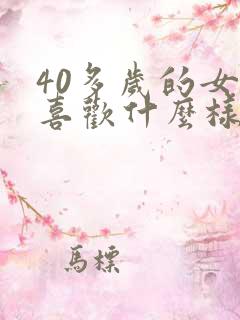 40多歲的女
喜歡什麼樣
馬標